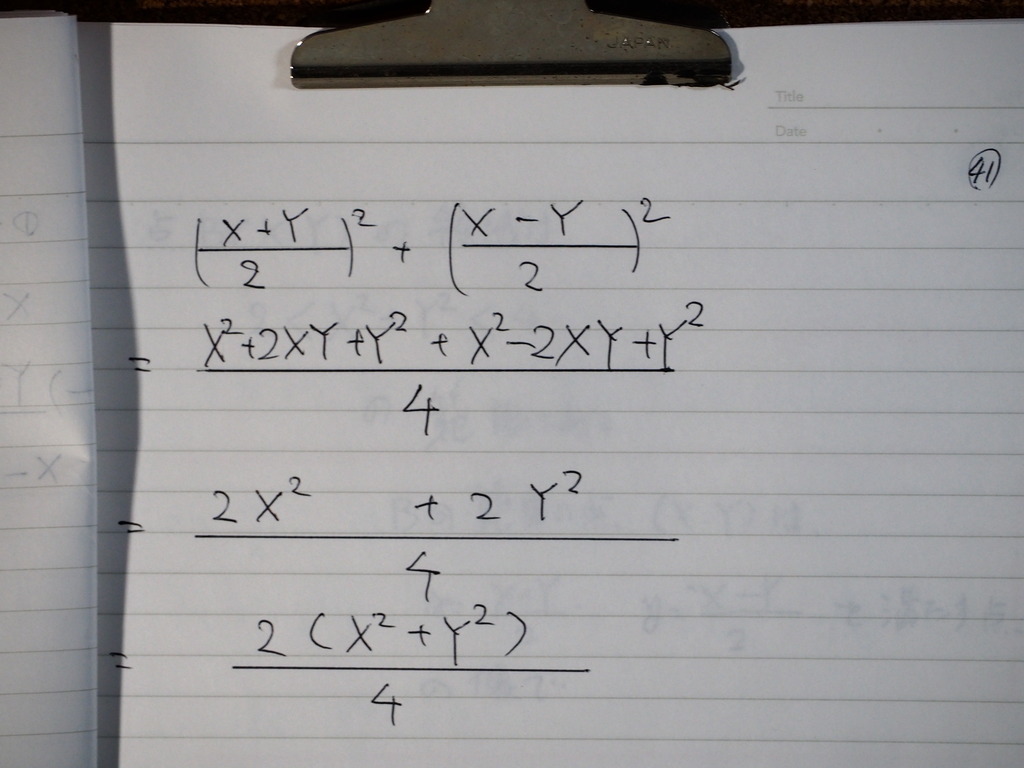 JAPAN
Title
Date
41
(X+Y/2)² + (X-Y/2)²
= X²+2XY+Y² + X²-2XY+Y² / 4
= 2X² + 2Y² / 4
= 2(X²+Y²) / 4